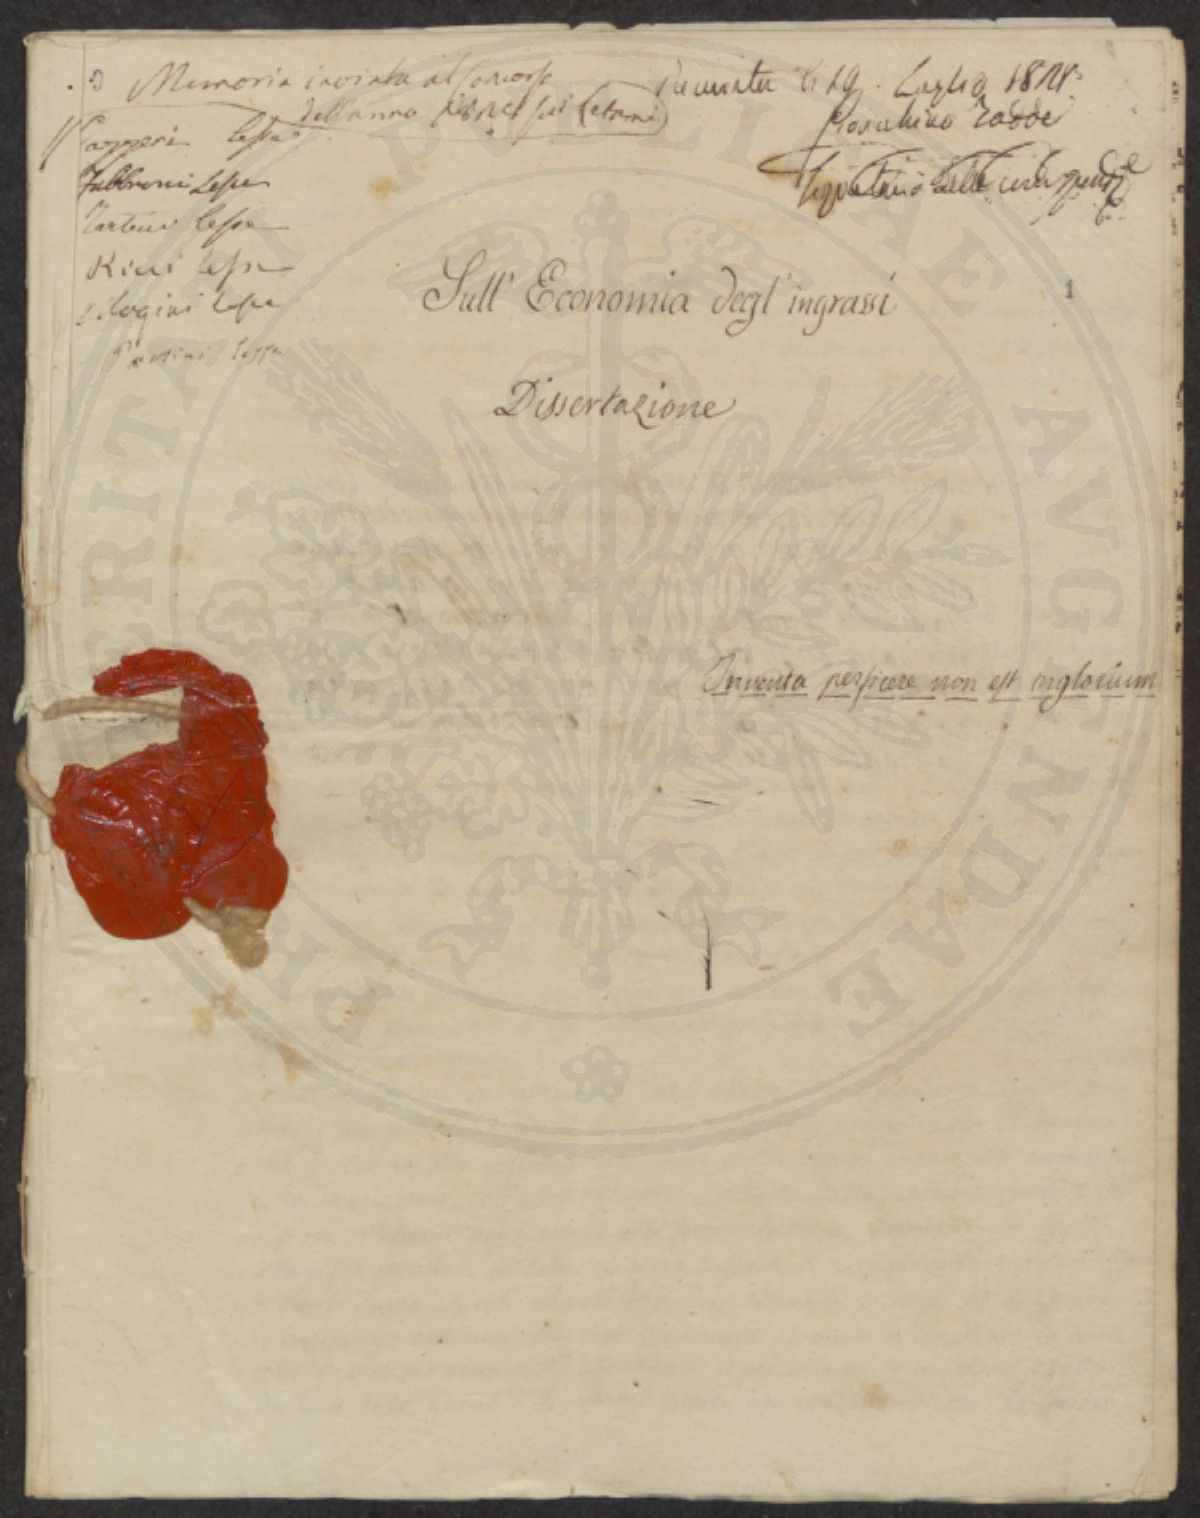 Memoria inviata al Concorso
dell'anno sui Letami
Ricevuta li 19. Luglio
Gioacchino Taddei
Segretario delle Corrispondze
Lessa
Fabbroni Lesse
Tartini lesse
Ricci lesse
lesse
lesse
Sull' Economia degl' ingrassi
1
Dissertazione
Inventa perficere non est inglorium
PROSPERITATI PUBLICAE AVGENDAE